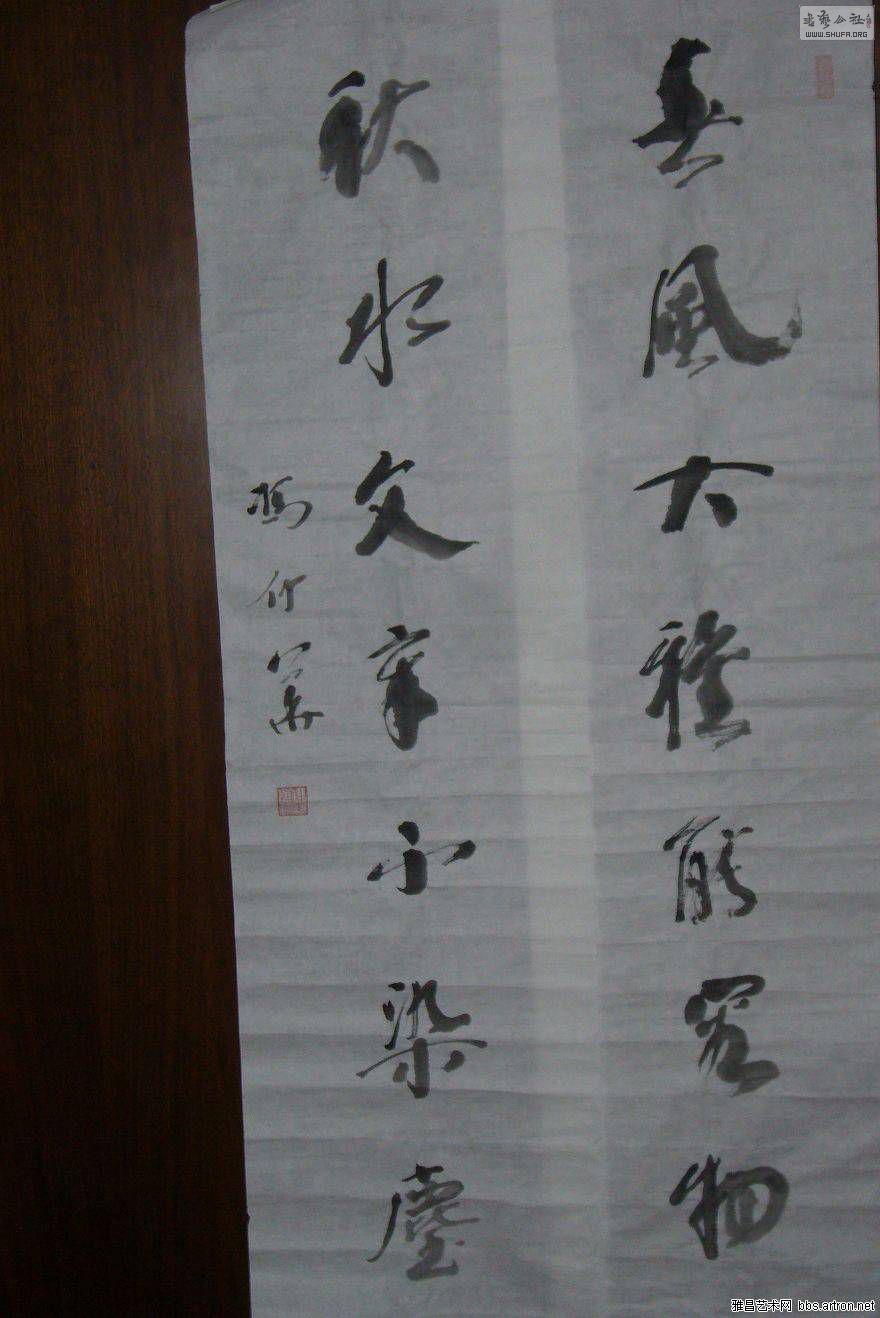 書藝公社
WWW.SHUFA.ORG
春風大雅能容物
秋水文章不染塵
雅昌艺术网 bbs.artron.net